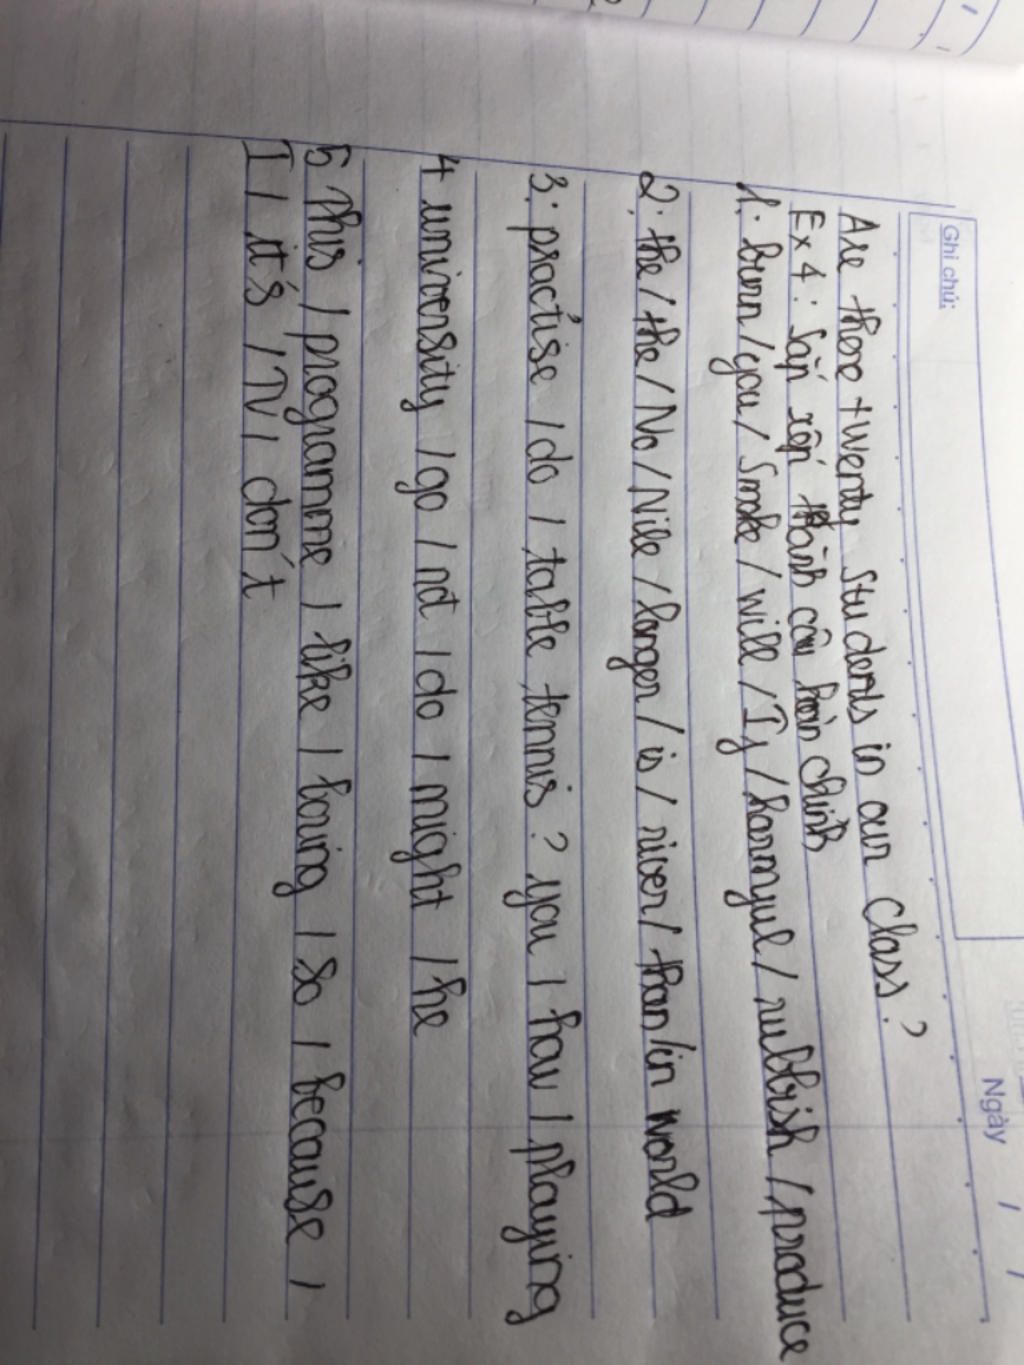 Ngày / /
Ghi chú:
Are there twenty students in our class?
Ex 4: Sắp xếp thành câu hoàn chỉnh
1. burn / you / smoke / will / If / harmful / rubbish / produce
2. the / the / No / Nile / longer / is / river / than / in world
3: practise / do / table tennis? you / how / playing
4 university / go / not / do / might / he
5 this / programme / like / boring / so / because /
I / it's / TV / don't